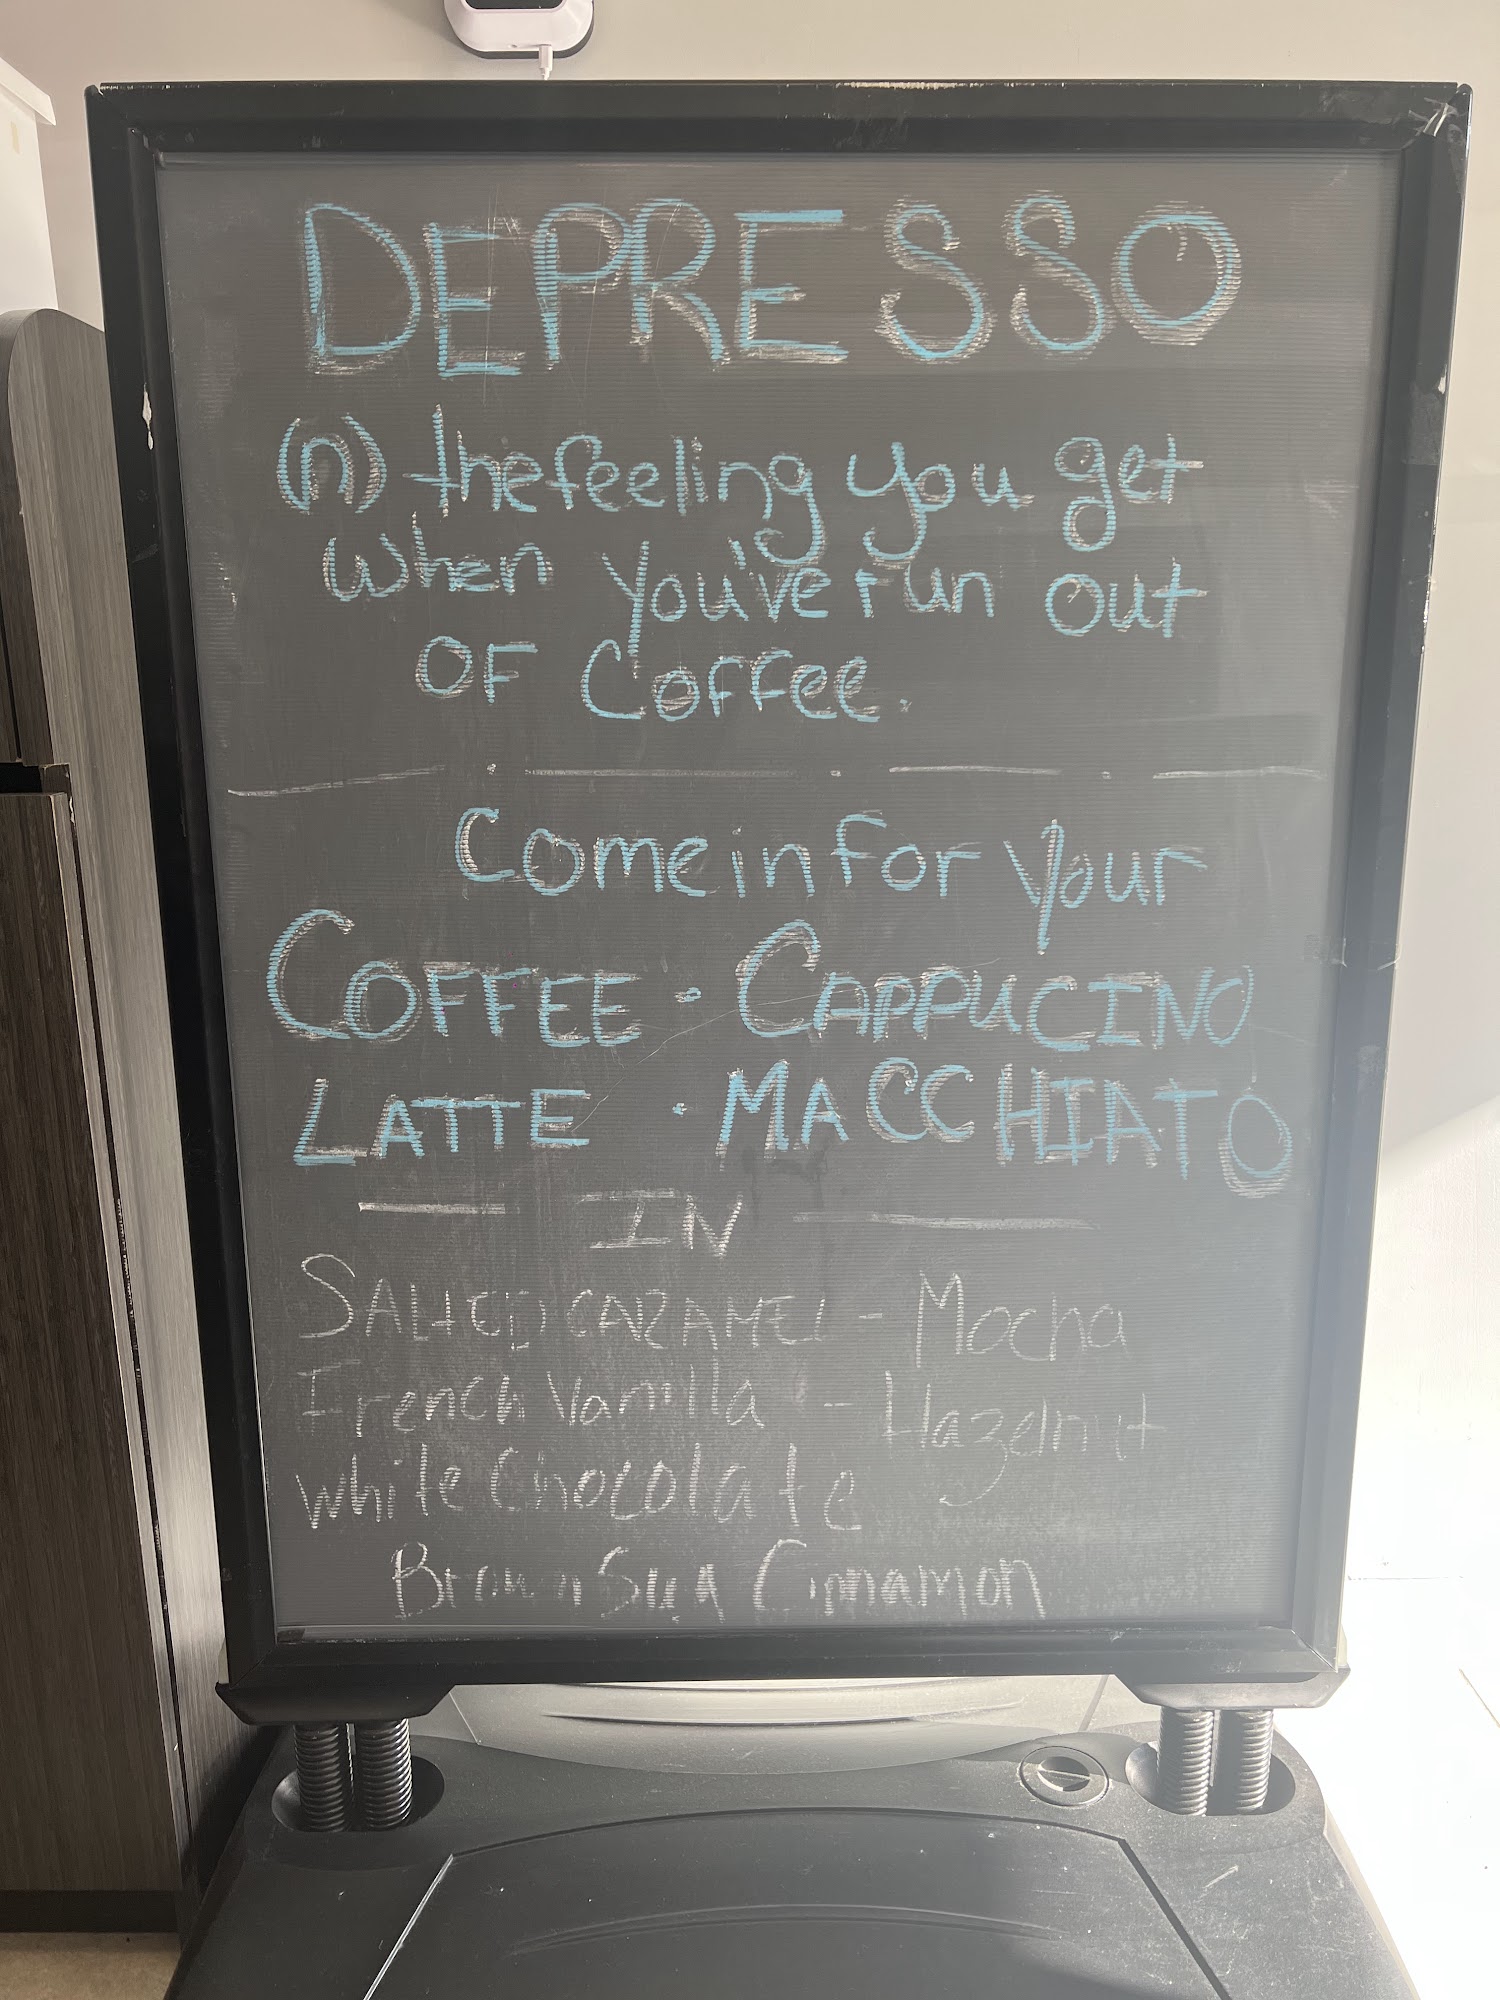 DEPRESSO
(n) the feeling you get
when you've run out
OF Coffee.
Come in for your
COFFEE · CAPPUCINO
LATTE · MACCHIATO
— IN —
SALTED CARAMEL - Mocha
French Vanilla - Hazelnut
White Chocolate
Brown Sug Cinnamon